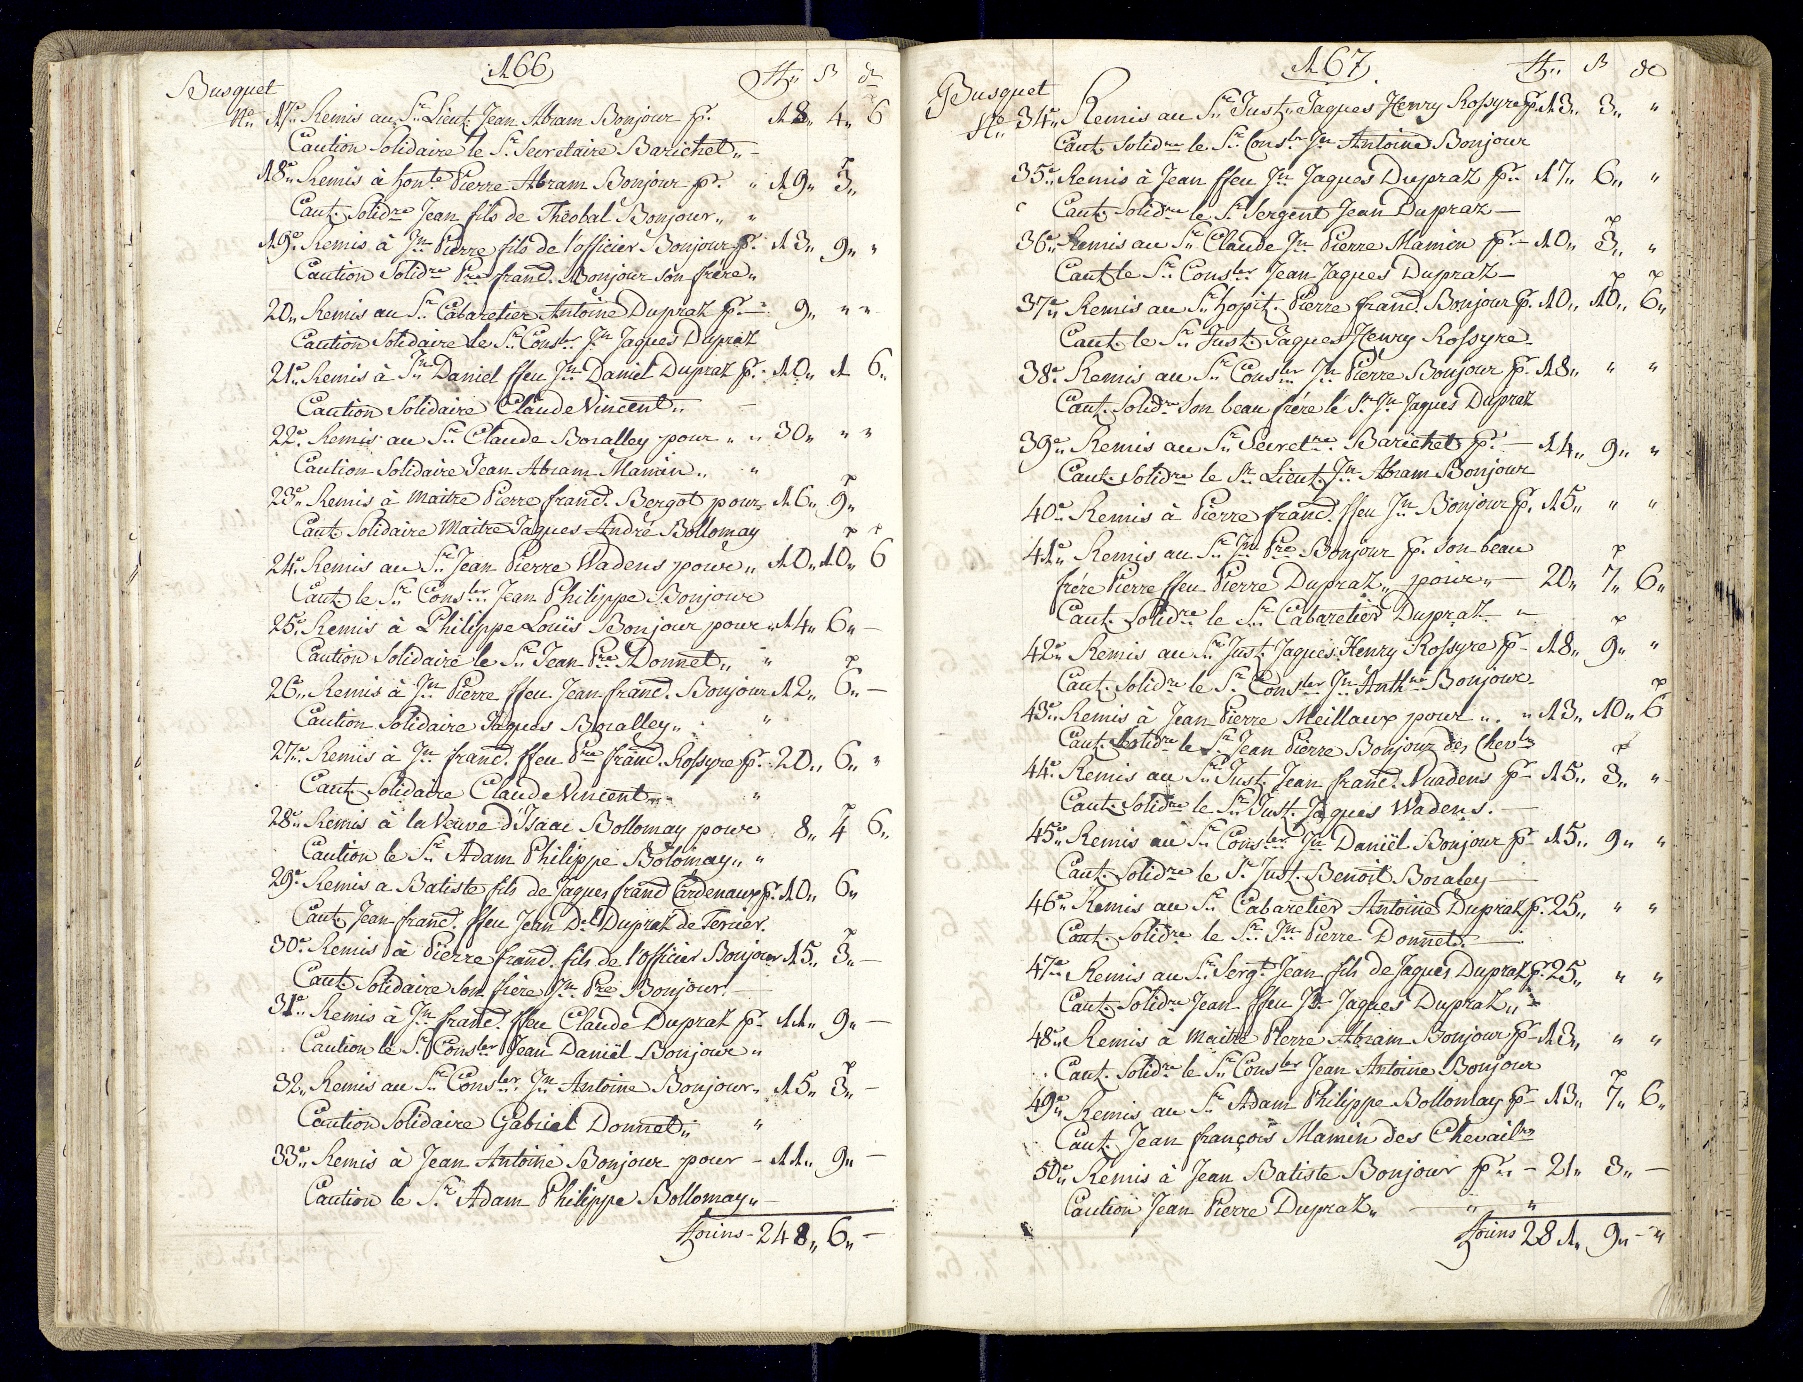 166
Busquet fl. ß d
No. 17e Remis au Sr. Lieut. Jean Abram Bonjour pr. 18„ 4„ 6
Caution Solidaire le Sr. Secretaire Barichet„ -
18e„ Remis à honte Pierre Abram Bonjour pr. „ 19„ 3„
Caut. Solidre Jean fils de Théobal Bonjour„ „
19e. Remis à Jn Pierre fils de l'officier Bonjour pr. 13„ 9„ „
Caution Solidre Pre franc. Bonjour Son frere„
20„ Remis au Sr. Cabaretier Antoine Dupraz pr. - 9„ „ „
Caution Solidaire le Sr. Consler Jn Jaques Dupraz
21e. Remis à Jn Daniel ffeu Jn Daniel Dupraz pr. 10„ 1 6„
Caution Solidaire Claude Vincent„ -
22e. Remis au Sr. Claude Boralley pour „ „ 30„ „ „
Caution Solidaire Jean Abram Mamin„ „
23e. Remis à maitre Pierre franc. Bergot pour„ 16„ 9„
Caut. Solidaire Maitre Jaques André Bollomay
24e. Remis au Sr. Jean Pierre Wadens pour „ 10„ 10„ 6
Caut. le Sr. Consler. Jean Philippe Bonjour
25e. Remis à Philippe Louïs Bonjour pour „ 14„ 6„ -
Caution Solidaire le Sr. Jean Pre Donnet„ „
26„ Remis à Jn Pierre ffeu Jean franc. Bonjour 12„ 6„ -
Caution Solidaire Jaques Boralley„ „
27e. Remis à Jn franc. ffeu Pre franc. Rossyre pr. 20„ 6„ „
Caut. Solidaire Claude Vincent„ „
28e„ Remis à la Veuve d'Isaac Bollomay pour 8„ 4 6„
Caution le Sr. Adam Philippe Bolomay„ „
29e. Remis a Batiste fils de Jaques franc Cardenaux pr. 10„ 6„
Caut. Jean franc. ffeu Jean Dl Dupraz de Tercier.
30e. Remis à Pierre franc. fils de l'officier Bonjour 15„ 3„ -
Caut. Solidaire Son frère Jn Pre Bonjour. -
31e„ Remis à Jn franc. ffeu Claude Dupraz pr. 11„ 9„ -
Caution le Sr. Consler Jean Daniël Bonjour„
32„ Remis au Sr. Consler. Jn Antoine Bonjour„ 15„ 3„ -
Caution Solidaire Gabriel Donnet„ „
33e„ Remis à Jean Antoine Bonjour pour - 11„ 9„ -
Caution le Sr. Adam Philippe Bollomay„ -
florins - 248„ 6„ -
167
Busquet fl. ß d
No. 34e„ Remis au Sr. Just. Jaques Henry Rossyre pr. 13„ 3„ „
Caut. Solidre le Sr. Consler Jn Antoine Bonjour
35e„ Remis à Jean ffeu Jn Jaques Dupraz pr. 17„ 6„ „
Caut. Solidre le Sr. Sergent Jean Dupraz -
36e„ Remis au Sr. Claude Jn Pierre Mamin pr. - 10„ 3„ „
Caut. le Sr. Consler Jean Jaques Dupraz -
37e„ Remis au Sr. hospit. Pierre franc. Bonjour pr. 10„ 10„ 6„
Caut. le Sr. Just. Jaques Henry Rossyre.
38e. Remis au Sr. Consler Jn Pierre Bonjour pr. 18„ „ „
Caut. Solidre Son beau frére le Sr. Jn Jaques Dupraz
39e„ Remis au Sr. Secretre. Barichet pr. - 14„ 9„ „
Caut. Solidre le Sr. Lieut. Jn Abram Bonjour
40e. Remis à Pierre franc. ffeu Jn Bonjour pr. 15„ „ „
41e„ Remis au Sr. Jn Pre Bonjour pr. Son beau
frére Pierre ffeu Pierre Dupraz„ pour„ - 20„ 7„ 6„
Caut. Solidre le Sr. Cabaretier Dupraz. „
42e„ Remis au Sr. Just. Jaques Henry Rossyre pr. 18„ 9„ „
Caut. Solidre le Sr. Consler Jn Anthne Bonjour.
43e„ Remis à Jean Pierre Meillaux pour „ „ 13„ 10„ 6
Caut. Solidre le Sr. Jean Pierre Bonjour des Chevlrs
44e. Remis au Sr. Just. Jean franc. Vuadens pr. 15„ 3„ „
Caut. Solidre le Sr. Just. Jaques Wadens. -
45e„ Remis au Sr. Consler Jn Daniël Bonjour pr. 15„ 9„ „
Caut. Solidre le Sr. Just. Benoit Boraley -
46e„ Remis au Sr. Cabaretier Antoine Dupraz pr. 25„ „ „
Caut. Solidre le Sr. Jn Pierre Donnet. -
47e„ Remis au Sr. Sergt. Jean fils de Jaques Dupraz pr. 25„ „ „
Caut. Solidre Jean ffeu Jn Jaques Dupraz„ -
48e„ Remis à maitre Pierre Abram Bonjour pr. 13„ „ „
Caut. Solidre le Sr. Consler Jean Antoine Bonjour
49e„ Remis au Sr. Adam Philippe Bollomay pr. 13„ 7„ 6„
Caut. Jean françois Mamin des Chevailrs
50e„ Remis à Jean Batiste Bonjour pr. - 21„ 3„ -
Caution Jean Pierre Dupraz„ - „ „
florins 281„ 9„ - „